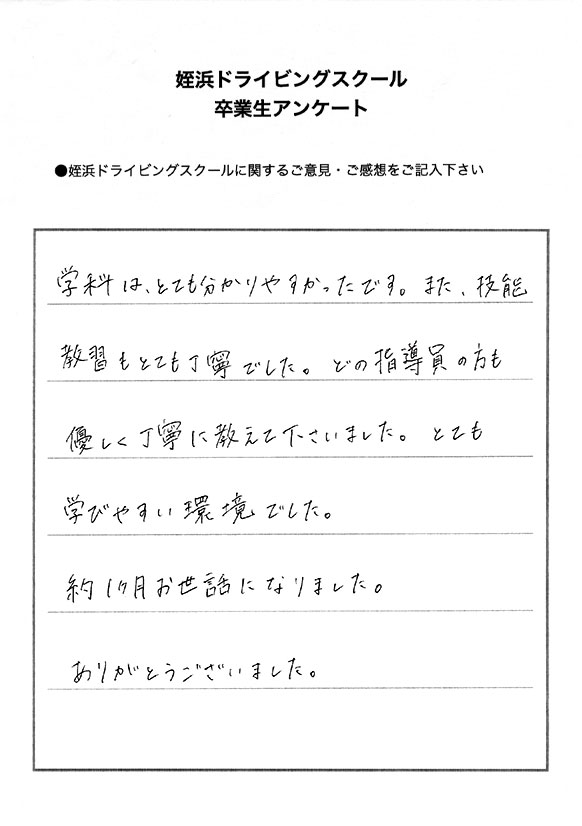 姪浜ドライビングスクール
卒業生アンケート
●姪浜ドライビングスクールに関するご意見・ご感想をご記入下さい
学科は、とても分かりやすかったです。また、技能
教習もとても丁寧でした。どの指導員の方も
優しく丁寧に教えて下さいました。とても
学びやすい環境でした。
約1ヶ月お世話になりました。
ありがとうございました。